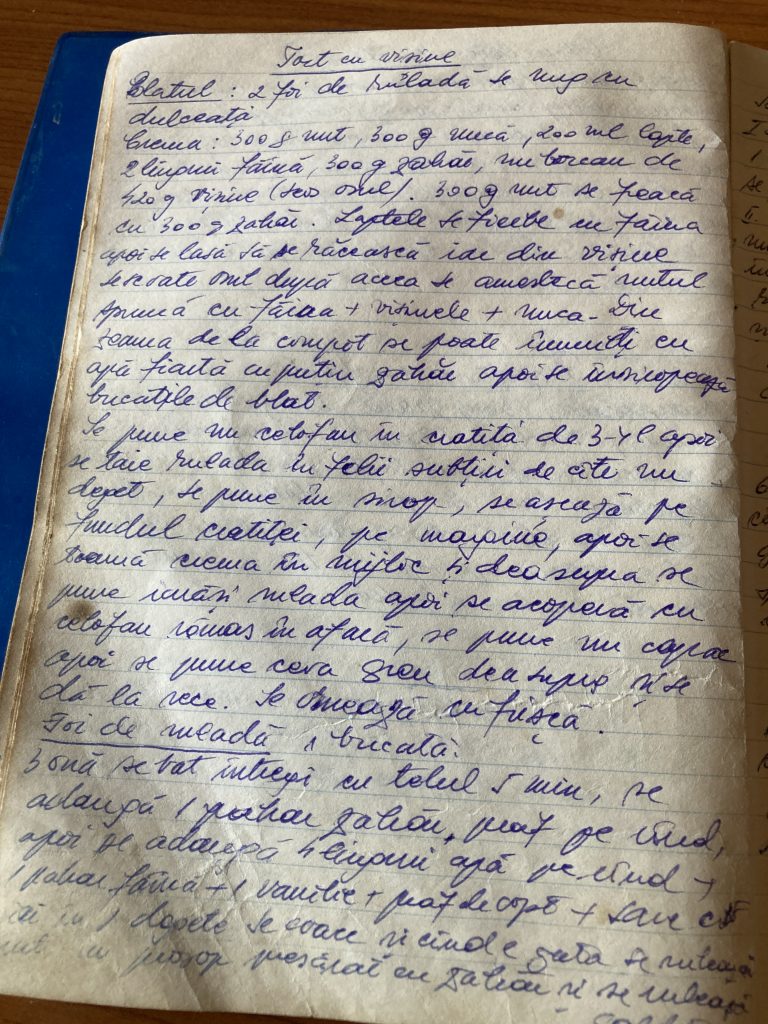 Tort cu vișine
Blatul : 2 foi de ruladă se ung cu
dulceață
Crema : 300 g unt, 300 g nucă, 200 ml lapte,
2 linguri făină, 300 g zahăr, un borcan de
420 g vișine (scos osul). 300 g unt se freacă
cu 300 g zahăr. Laptele se fierbe cu făina
apoi se lasă să se răcească iar din vișine
se scoate osul după aceea se amestecă untul
spumă cu făina + vișinele + nuca. Din
zeama de la compot se poate înmulți cu
apă fiartă cu puțin zahăr apoi se însiropează
bucățile de blat.
Se pune un celofan în cratiță de 3-4 l apoi
se taie rulada în felii subțiri de câte un
deget, se pune în sirop, se așează pe
fundul cratiței, pe margine, apoi se
toarnă crema în mijloc și deasupra se
pune iarăși rulada apoi se acoperă cu
celofan rămas în afară, se pune un capac
apoi se pune ceva greu deasupra și se
dă la rece. Se ornează cu frișcă.
Foi de ruladă 1 bucată.
3 ouă se bat întregi cu telul 5 min, se
adaugă 1 pahar zahăr, praf pe rînd,
apoi se adaugă 4 linguri apă pe rînd +
1 pahar făină + 1 vanilie + praf de copt + sare
în 1 se coace și cînd e gata se rulează
prosop presărat cu zahăr și se rulează